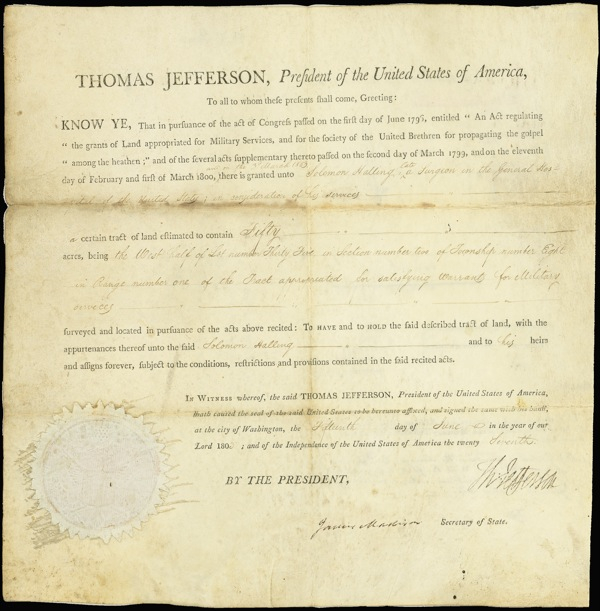 THOMAS JEFFERSON, President of the United States of America,
To all to whom these presents shall come, Greeting:
KNOW YE, That in pursuance of the act of Congress passed on the first day of June 1796, entitled " An Act regulating
" the grants of Land appropriated for Military Services, and for the society of the United Brethren for propagating the gospel
" among the heathen;" and of the several acts supplementary thereto passed on the second day of March 1799, and on the eleventh
day of February and first of March 1800, there is granted unto Solomon Halling, late a Surgeon in the General Hos-
pital of the United States in consideration of his services
a certain tract of land estimated to contain Fifty
acres, being the West half of Lot number Thirty Five in Section number two of Township number Eight
in Range number one of the Tract appropriated for satisfying warrants for Military
services
surveyed and located in pursuance of the acts above recited: To HAVE and to HOLD the said described tract of land, with the
appurtenances thereof unto the said Solomon Halling and to his heirs
and assigns forever, subject to the conditions, restrictions and provisions contained in the said recited acts.
IN WITNESS whereof, the said THOMAS JEFFERSON, President of the United States of America,
hath caused the seal of the said United States to be hereunto affixed, and signed the same with his hand,
at the city of Washington, the Fifteenth day of June in the year of our
Lord 180 ; and of the Independence of the United States of America the twenty Seventh.
BY THE PRESIDENT, Th: Jefferson
James Madison Secretary of State.